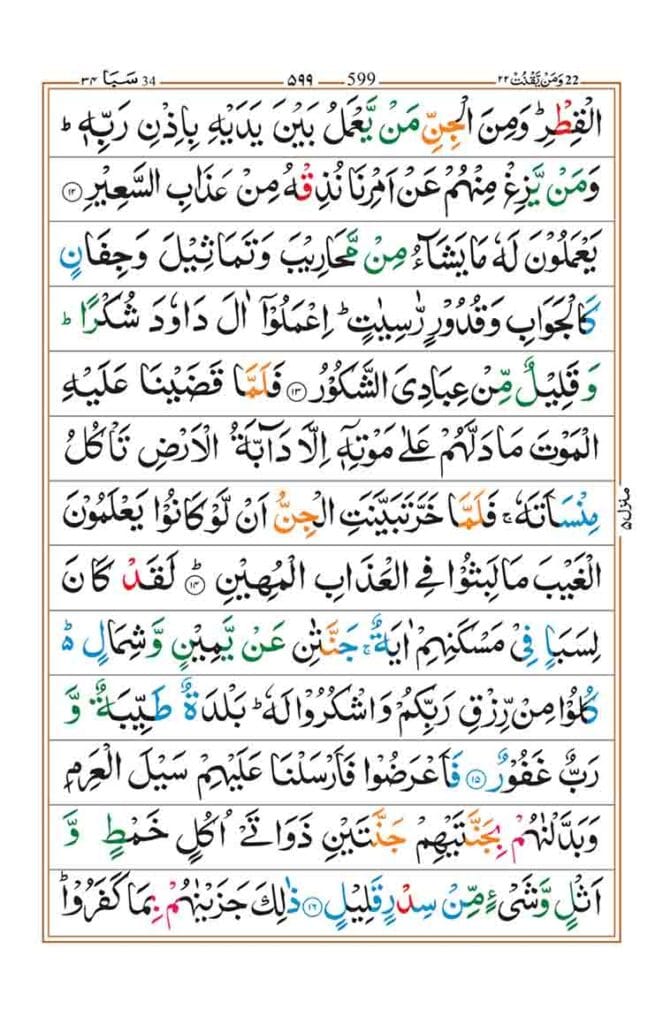 ٣٤ سَبَا 34 ٥٩٩ 599 وَمَنْ يَّقْنُتْ ٢٢ 22
الْقِطْرِ ؕ وَمِنَ الْجِنِّ مَنْ يَّعْمَلُ بَيْنَ يَدَيْهِ بِاِذْنِ رَبِّهٖ ؕ
وَمَنْ يَّزِغْ مِنْهُمْ عَنْ اَمْرِنَا نُذِقْهُ مِنْ عَذَابِ السَّعِيْرِ ﴿۱۲﴾
يَعْمَلُوْنَ لَهٗ مَا يَشَآءُ مِنْ مَّحَارِيْبَ وَتَمَاثِيْلَ وَجِفَانٍ
كَالْجَوَابِ وَقُدُوْرٍ رّٰسِيٰتٍ ؕ اِعْمَلُوْۤا اٰلَ دَاوٗدَ شُكْرًا ؕ
وَقَلِيْلٌ مِّنْ عِبَادِيَ الشَّكُوْرُ ﴿۱۳﴾ فَلَمَّا قَضَيْنَا عَلَيْهِ
الْمَوْتَ مَا دَلَّهُمْ عَلٰى مَوْتِهٖۤ اِلَّا دَآبَّةُ الْاَرْضِ تَاْكُلُ
مِنْسَاَتَهٗ ۚ فَلَمَّا خَرَّ تَبَيَّنَتِ الْجِنُّ اَنْ لَّوْ كَانُوْا يَعْلَمُوْنَ
الْغَيْبَ مَا لَبِثُوْا فِي الْعَذَابِ الْمُهِيْنِ ﴿ؕ۱۴﴾ لَقَدْ كَانَ
لِسَبَاٍ فِيْ مَسْكَنِهِمْ اٰيَةٌ ۚ جَنَّتٰنِ عَنْ يَّمِيْنٍ وَّشِمَالٍ ؕ۬
كُلُوْا مِنْ رِّزْقِ رَبِّكُمْ وَاشْكُرُوْا لَهٗ ؕ بَلْدَةٌ طَيِّبَةٌ وَّ
رَبٌّ غَفُوْرٌ ﴿۱۵﴾ فَاَعْرَضُوْا فَاَرْسَلْنَا عَلَيْهِمْ سَيْلَ الْعَرِمِ
وَبَدَّلْنٰهُمْ بِجَنَّتَيْهِمْ جَنَّتَيْنِ ذَوَاتَيْ اُكُلٍ خَمْطٍ وَّ
اَثْلٍ وَّشَيْءٍ مِّنْ سِدْرٍ قَلِيْلٍ ﴿۱۶﴾ ذٰلِكَ جَزَيْنٰهُمْ بِمَا كَفَرُوْا ؕ
منزل ۵